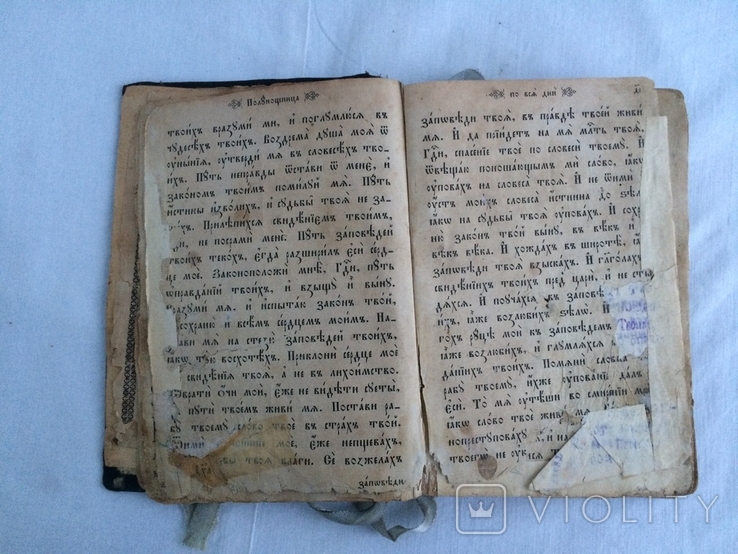 Полунощница
твоихъ вразуми ми, и поглумлюся въ
чудесѣхъ твоихъ. Воздрема душа моя ѿ
оунынїя, оутверди мя въ словесѣхъ тво-
ихъ. Путь неправды ѿстави ѿ мене, и
закономъ твоимъ помилуй мя. Путь
истины изволихъ, и судьбы твоя не за-
Прилѣпихся свидѣнїемъ твоимъ,
не посрами мене. Путь заповѣдей
твоихъ текохъ, егда разширилъ еси серд-
це мое. Законоположи мнѣ, гдⷭ҇и, путь
ѡправданїй твоихъ, и взыщу и выну.
Вразуми мя, и испытаю законъ твой,
сохраню и всѣмъ сердцемъ моимъ. На-
мя на стезю заповѣдей твоихъ,
ꙗкѡ тую восхотѣхъ. Приклони сердце мое
свидѣнїя твоя, а не въ лихоимство.
очи мои, еже не видѣти суеты,
пути твоемъ живи мя. Постави ра-
бу твоему слово твое въ страхъ твой.
мое, еже непщевахъ,
твоя благи. Се возжелахъ
заповѣди
по вся дни
заповѣди твоя, въ правдѣ твоей живи
мя. И да прїидетъ на мя млⷭ҇ть твоя,
гдⷭ҇и, спасенїе твое по словеси твоему. И
ѿвѣщаю поношающымъ ми слово, ꙗкѡ
уповахъ на словеса твоя. И не ѿими ѿ
оустъ моихъ словесе истинна до ѕѣла
ꙗкѡ на судьбы твоя уповахъ. И сохр
законъ твой выну, въ вѣкъ и
вѣкъ вѣка. И хождахъ въ широтѣ,
заповѣди твоя взыскахъ. И глаголахъ
свидѣнїихъ твоихъ пред цари, и не сты
дяхся. И поучахся въ заповѣ
ихъ, ꙗже возлюбихъ ѕѣлѡ. И
руцѣ мои къ заповѣдемъ
ꙗже возлюбихъ, и глумляхся
данїихъ твоихъ. Помяни словеса
рабу твоему, ихже упованїе далъ
еси. То мя утѣши во смиренїи м
ꙗкѡ слово твое живи мя.
попреступоваху
твоегѡ не
VIOLITY